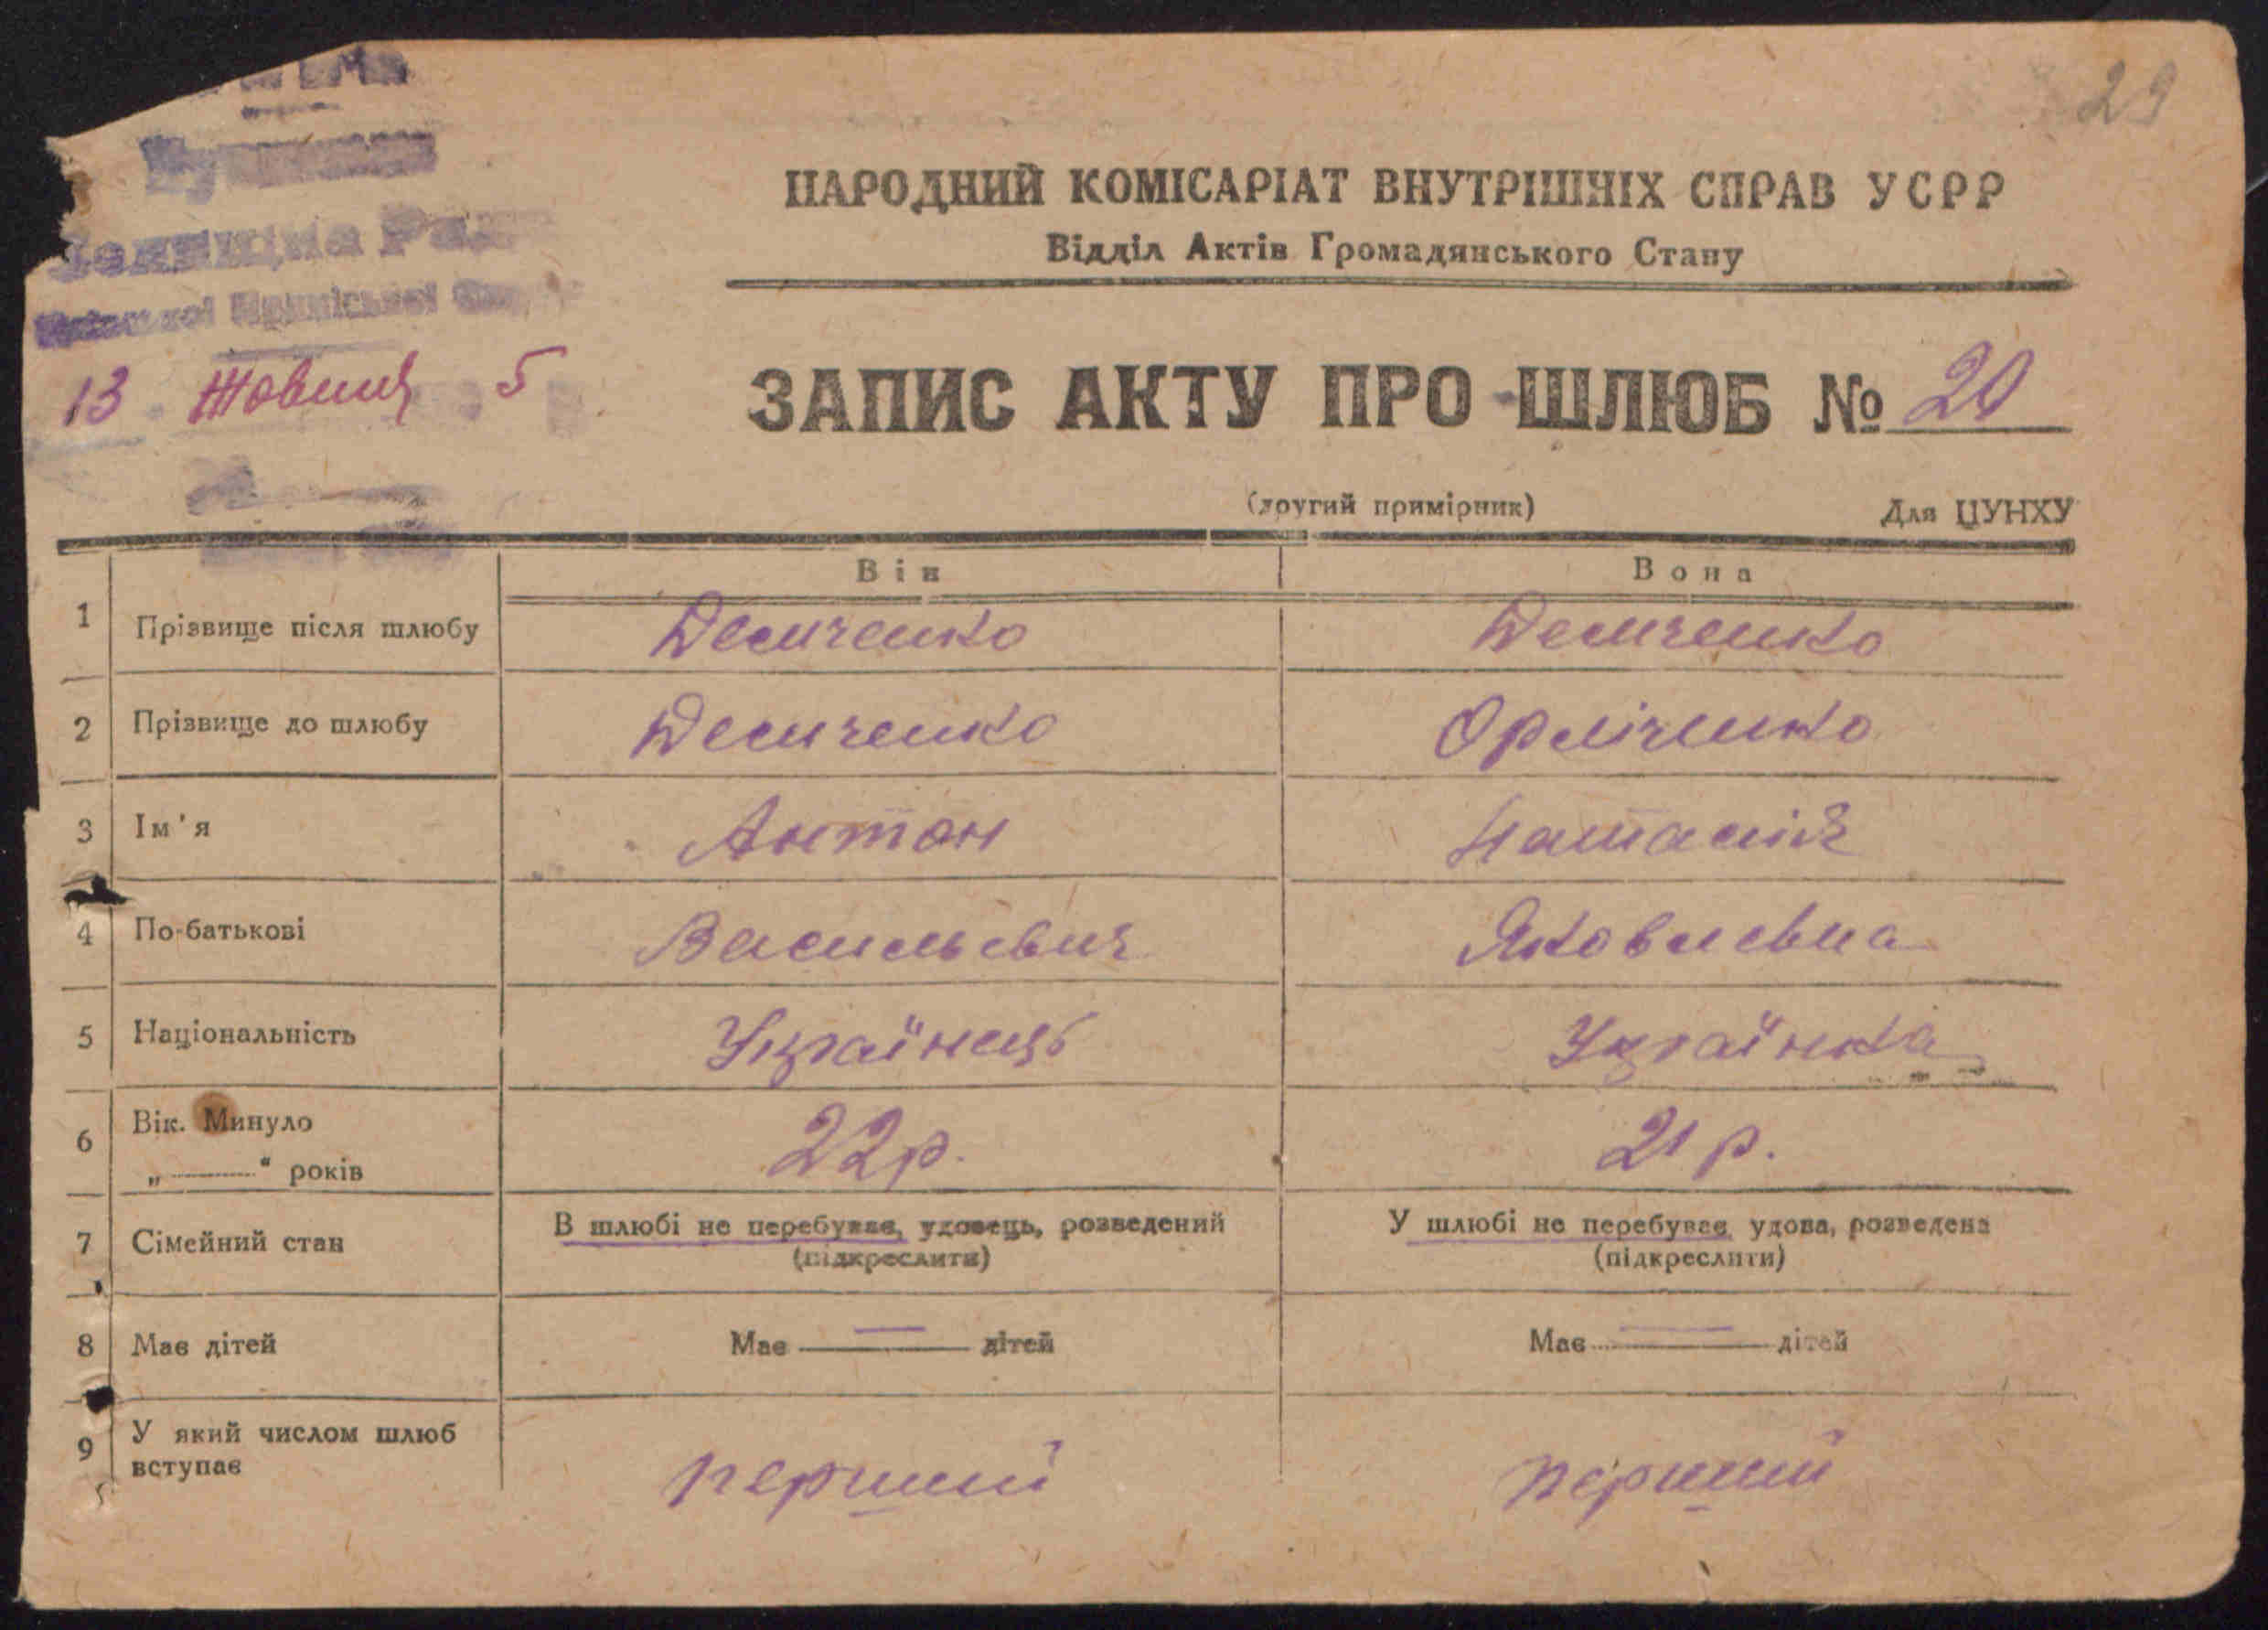 29
НАРОДНИЙ КОМІСАРІАТ ВНУТРІШНІХ СПРАВ УСРР
Відділ Актів Громадянського Стану
13 Жовтня 5
ЗАПИС АКТУ ПРО ШЛЮБ № 20
(другий примірник) Для ЦУНХУ
Він Вона
1 Прізвище після шлюбу Демченко Демченко
2 Прізвище до шлюбу Демченко
3 Ім'я Антон Наталія
4 По-батькові Васильевич Яковлевна
5 Національність Українець Українка
6 Вік. Минуло 22 р. 21 р.
„ “ років
7 Сімейний стан В шлюбі не перебуває, удовець, розведений У шлюбі не перебуває, удова, розведена
(підкреслити) (підкреслити)
8 Має дітей Має — дітей Має — дітей
9 У який числом шлюб
вступає перший перший